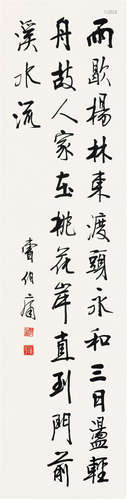 雨歇楊林東渡頭永和三日盪輕
舟故人家在桃花岸直到門前
溪水流
曹伯庸